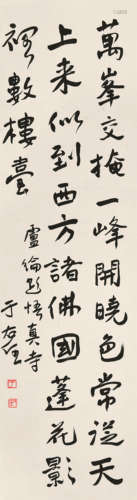 萬峯交掩一峰開曉色常從天
上来似到西方諸佛國蓮花影
裡數樓臺
盧綸題悟真寺
于右任